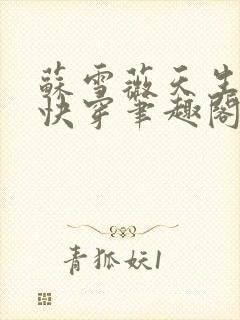 蘇雪薇天生
快穿筆趣閣
青狐妖1